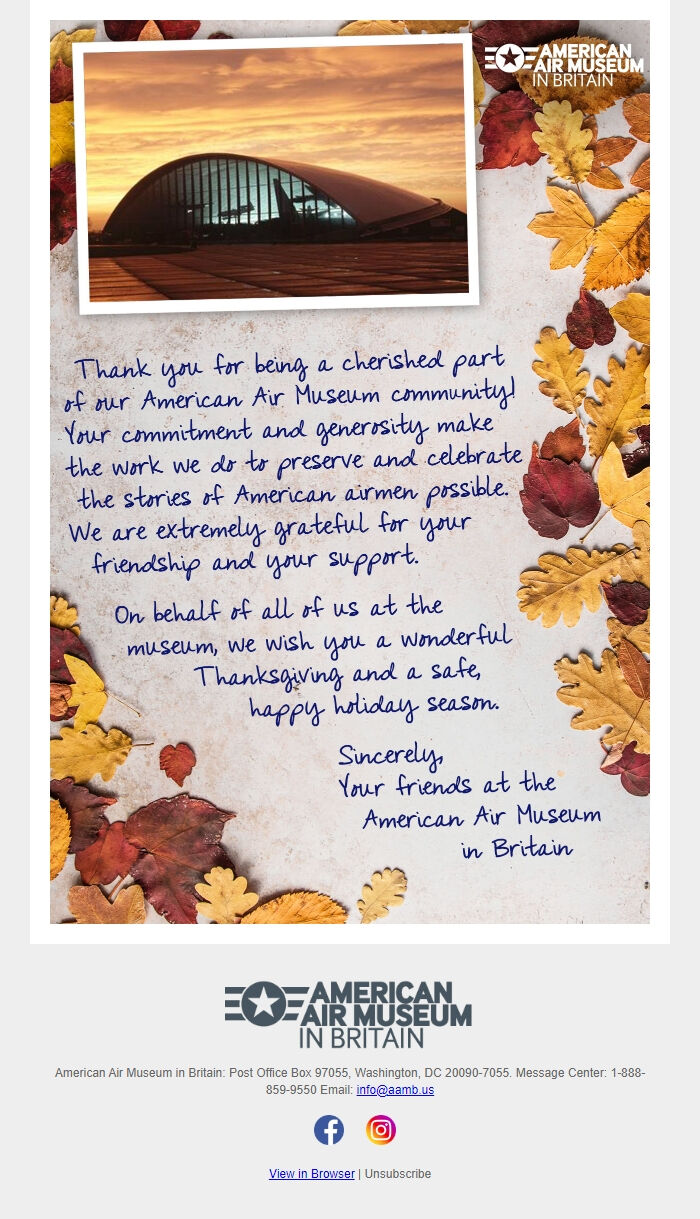 AMERICAN
AIR MUSEUM
IN BRITAIN
Thank you for being a cherished part
of our American Air Museum community!
Your commitment and generosity make
the work we do to preserve and celebrate
the stories of American airmen possible.
We are extremely grateful for your
friendship and your support.
On behalf of all of us at the
museum, we wish you a wonderful
Thanksgiving and a safe,
happy holiday season.
Sincerely,
Your friends at the
American Air Museum
in Britain
AMERICAN
AIR MUSEUM
IN BRITAIN
American Air Museum in Britain: Post Office Box 97055, Washington, DC 20090-7055. Message Center: 1-888-
859-9550 Email: info@aamb.us
View in Browser | Unsubscribe